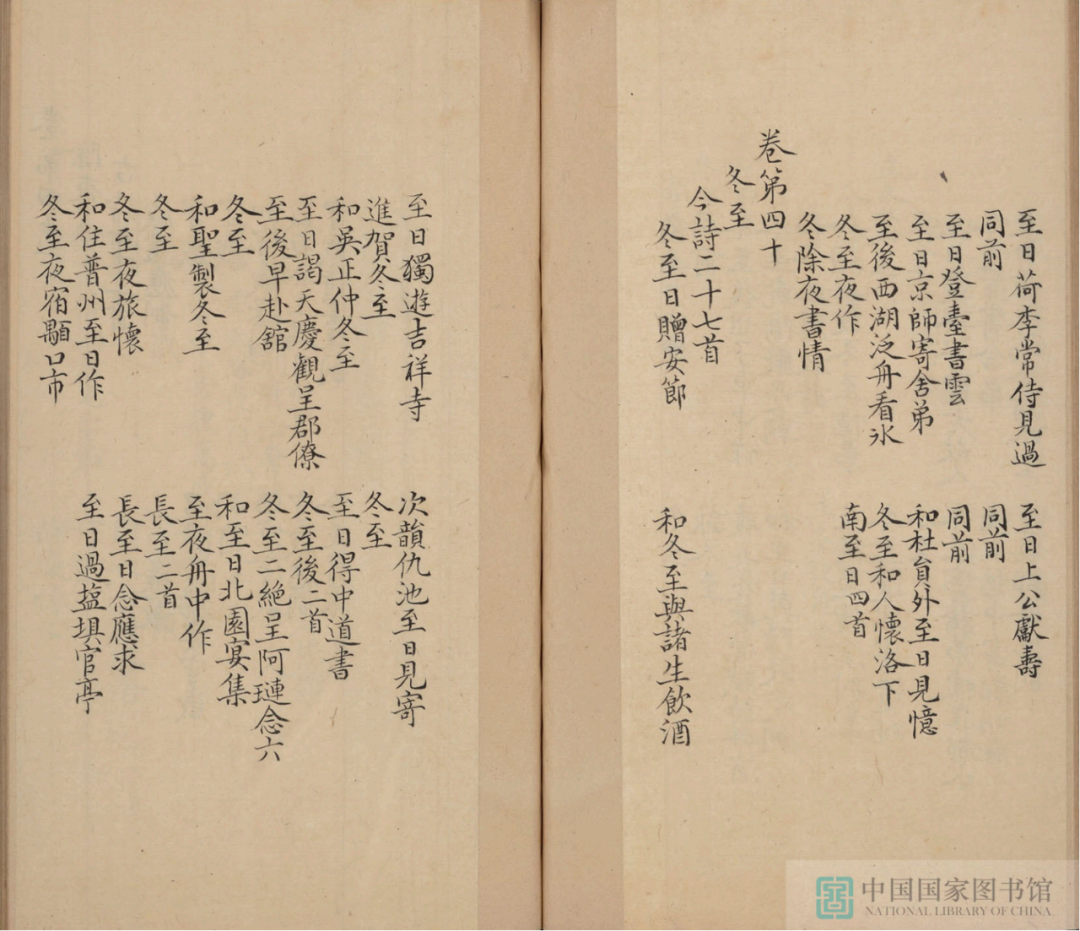 至日荷李常侍見過　至日上公獻壽
同前　同前
至日登臺書雲　同前
至日京師寄舍弟　和杜員外至日見憶
至後西湖泛舟看氷　冬至和人懷洛下
冬至夜作　南至日四首
冬除夜書情
卷第四十
冬至
今詩二十七首
冬至日贈安節　和冬至與諸生飲酒
至日獨遊吉祥寺　次韻仇池至日見寄
進賀冬至　冬至
和吳正仲冬至　至日得中道書
至日謁天慶觀呈郡僚　冬至後二首
至後早赴舘　冬至二絕呈阿璉念六
冬至　和至日北園宴集
和聖製冬至　至夜舟中作
冬至　長至二首
冬至夜旅懷　長至日念應求
和住普州至日作　至日過塩埧官亭
冬至夜宿顯口市
中国国家图书馆
NATIONAL LIBRARY OF CHINA